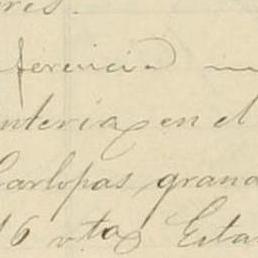 res.
ferencia
nteria en el
Garlopas grand
16 vtas Esta